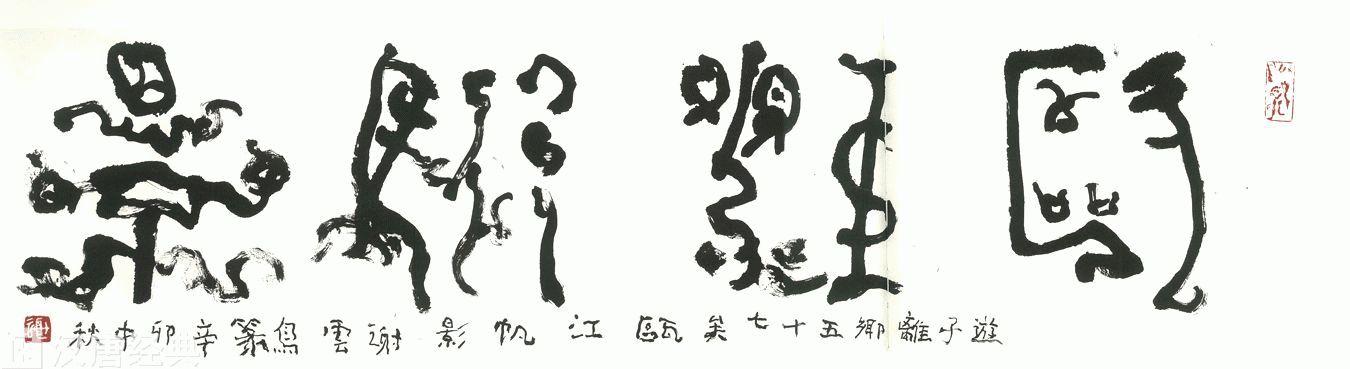 甌江帆影
遊子離鄉五十七矣甌江帆影謝雲鳥篆辛卯中秋
汉唐经典